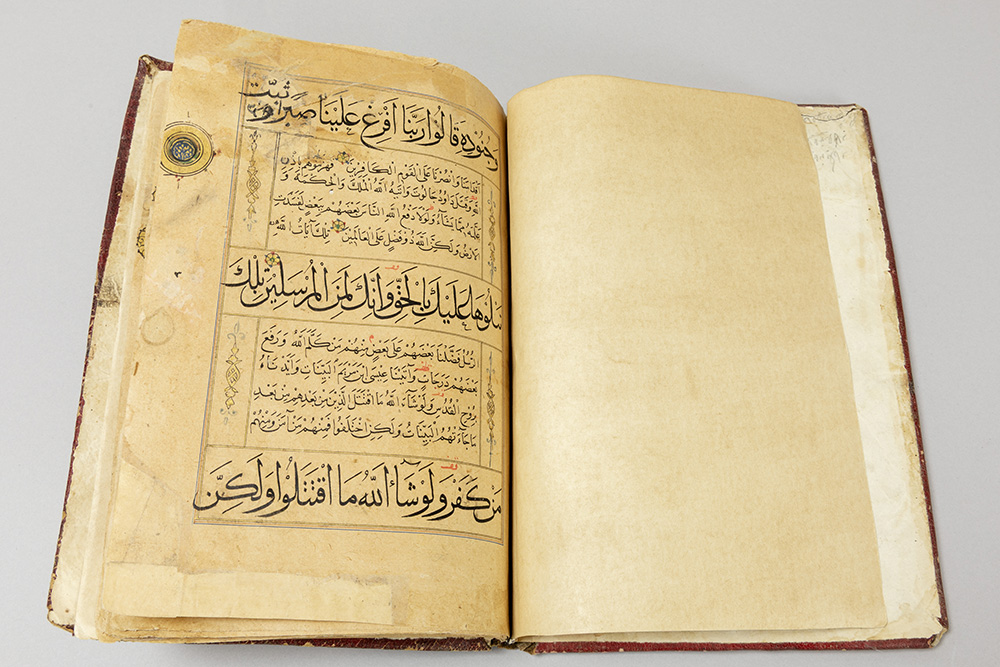 وَجُنُودِهِ قَالُوا رَبَّنَا أَفْرِغْ عَلَيْنَا صَبْرًا وَثَبِّتْ
أَقْدَامَنَا وَانْصُرْنَا عَلَى الْقَوْمِ الْكَافِرِينَ فَهَزَمُوهُمْ بِإِذْنِ
اللَّهِ وَقَتَلَ دَاوُدُ جَالُوتَ وَآتَيهُ اللَّهُ الْمُلْكَ وَالْحِكْمَةَ وَ
عَلَّمَهُ مِمَّا يَشَاءُ وَلَوْلَا دَفْعُ اللَّهِ النَّاسَ بَعْضَهُمْ بِبَعْضٍ لَفَسَدَتِ
الْأَرْضُ وَلَكِنَّ اللَّهَ ذُو فَضْلٍ عَلَى الْعَالَمِينَ تِلْكَ آيَاتُ اللَّهِ
نَتْلُوهَا عَلَيْكَ بِالْحَقِّ وَإِنَّكَ لَمِنَ الْمُرْسَلِينَ تِلْكَ
الرُّسُلُ فَضَّلْنَا بَعْضَهُمْ عَلَى بَعْضٍ مِنْهُمْ مَنْ كَلَّمَ اللَّهُ وَرَفَعَ
بَعْضَهُمْ دَرَجَاتٍ وَآتَيْنَا عِيسَى ابْنَ مَرْيَمَ الْبَيِّنَاتِ وَأَيَّدْنَاهُ
بِرُوحِ الْقُدُسِ وَلَوْ شَاءَ اللَّهُ مَا اقْتَتَلَ الَّذِينَ مِنْ بَعْدِهِمْ مِنْ بَعْدِ
مَا جَاءَتْهُمُ الْبَيِّنَاتُ وَلَكِنِ اخْتَلَفُوا فَمِنْهُمْ مَنْ آمَنَ وَمِنْهُمْ
مَنْ كَفَرَ وَلَوْ شَاءَ اللَّهُ مَا اقْتَتَلُوا وَلَكِنَّ